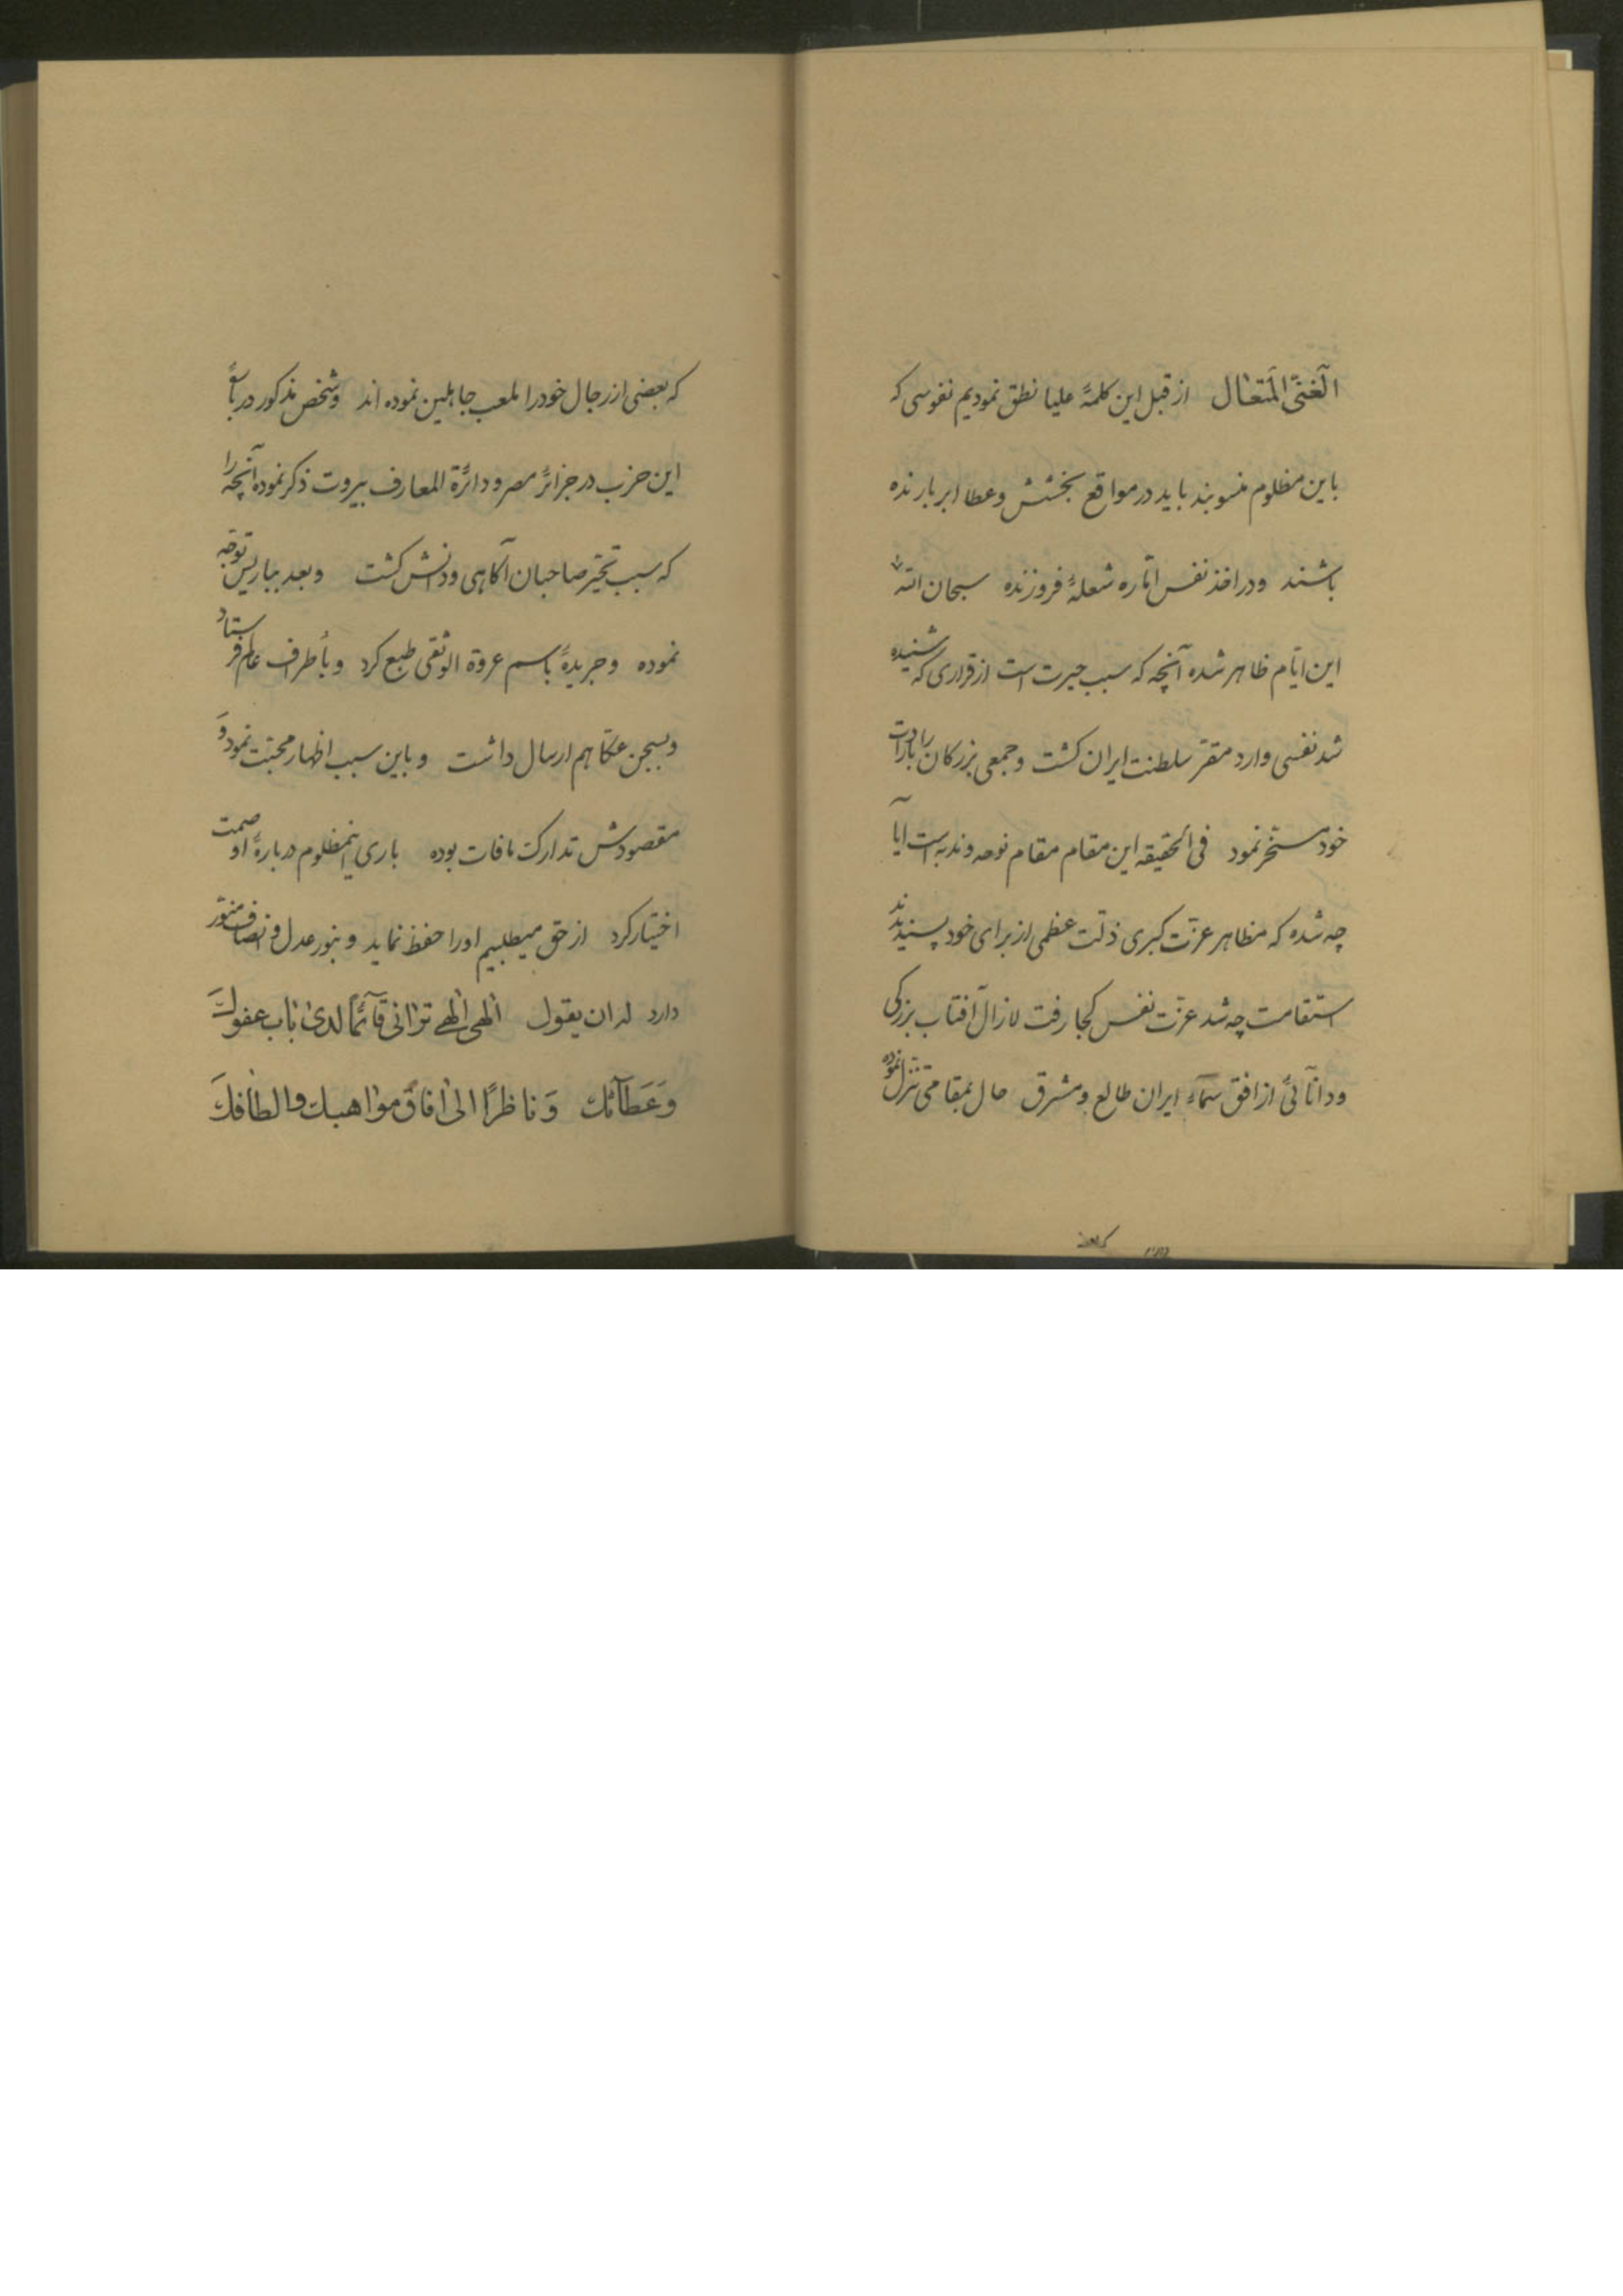 الغنیّ المتعال از قبل این کلمهٔ علیا نطق نمودیم نفوسی که
باین مظلوم منسوبند باید در مواقع بخشش و عطا ابر بارنده
باشند و در اخذ نفس امّاره شعلهٔ فروزنده سبحان اللّه
این ایّام ظاهر شده آنچه که سبب حیرت است از قراری که شنیده
شد نفسی وارد مقرّ سلطنت ایران کشت و جمعی بزرکان را بارادت
خود مسخّر نمود فی الحقیقه این مقام مقام نوحه و ندبه است آیا
چه شده که مظاهر عزّت کبری ذلّت عظمی از برای خود پسندیدند
استقامت چه شد عزّت نفس کجا رفت لازال آفتاب بزرکی
و دانآئی از افق سمآء ایران طالع و مشرق حال بمقامی تنزّل نموده
که بعضی از رجال خود را ملعب جاهلین نموده اند و شخص مذکور دربارهٔ
این حزب در جرائد مصر و دائرة المعارف بیروت ذکر نموده آنچه را
که سبب تحیّر صاحبان آکاهی و دانش کشت و بعد بپاریس توجّه
نموده و جریدهٔ باسم عروة الوثقی طبع کرد و بأطراف عالم فرستاد
و بسجن عکّا هم ارسال داشت و باین سبب اظهار محبّت نمود و
مقصودش تدارک مافات بوده باری اینمظلوم دربارهٔ او صمت
اختیار کرد از حق میطلبیم او را حفظ نماید و بنور عدل و انصاف منوّر
دارد له ان یقول الهی الهی ترانی قآئمًا لدی باب عفوک
وَعَطآئک وَ ناظرًا الی آفاق مواهبک و الطافکَ